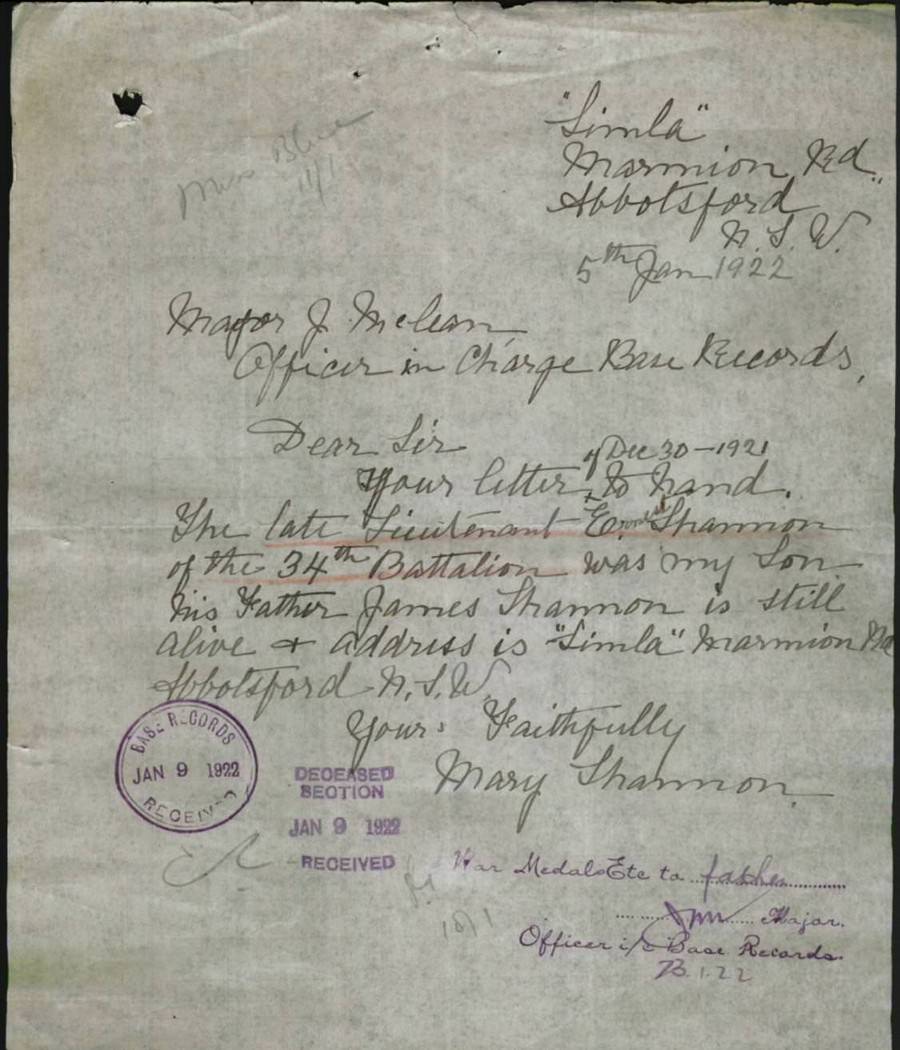 "Simla"
Marmion Rd.,
Abbotsford
N. S. W.
5th Jan 1922
Major J. McLean
Officer in Charge Base Records,
Dear Sir
of Dec 30 - 1921
Your letter to hand.
The late Lieutenant E. Shannon
of the 34th Battalion was my Son
his Father James Shannon is still
alive & address is "Simla" Marmion Rd
Abbotsford N.S.W.
Yours Faithfully
Mary Shannon.
BASE RECORDS
JAN 9 1922
RECEIVED
DECEASED
SECTION
JAN 9 1922
RECEIVED
War Medals Etc to father
Major.
Officer i/c Base Records.
1.22